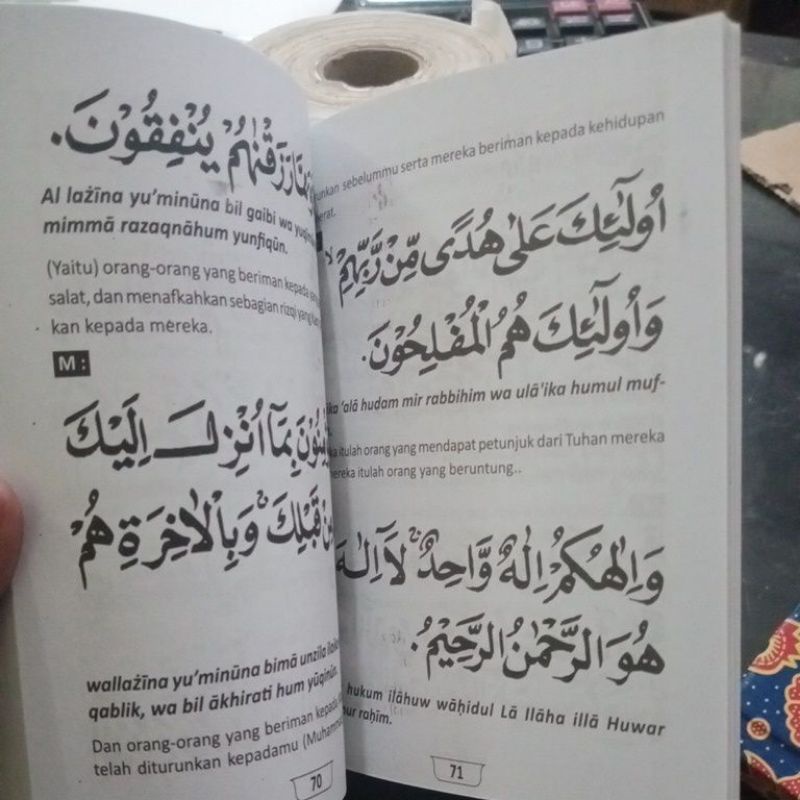 رَزَقْنٰهُمْ يُنْفِقُوْنَ.
Al lażīna yu'minūna bil gaibi wa
mimmā razaqnāhum yunfiqūn.
(Yaitu) orang-orang yang beriman kepada
salat, dan menafkahkan sebagian rizqi yang
kan kepada mereka.
M :
بِمَآ اُنْزِلَ اِلَيْكَ
قَبْلِكَ ۚ وَبِالْاٰخِرَةِ هُمْ
wallażīna yu'minūna bimā unzila
qablik, wa bil ākhirati hum yūqinūn.
Dan orang-orang yang beriman kepada
telah diturunkan kepadamu (Muhammad
70
sebelummu serta mereka beriman kepada kehidupan
اُولٰٓئِكَ عَلٰى هُدًى مِّنْ رَّبِّهِمْ
وَاُولٰٓئِكَ هُمُ الْمُفْلِحُوْنَ.
'alā hudam mir rabbihim wa ulā'ika humul muf-
itulah orang yang mendapat petunjuk dari Tuhan mereka
itulah orang yang beruntung..
وَاِلٰهُكُمْ اِلٰهٌ وَّاحِدٌ ۚ لَآ اِلٰهَ
هُوَ الرَّحْمٰنُ الرَّحِيْمُ.
hukum ilāhuw wāḥidul Lā Ilāha illā Huwar
raḥīm.
71